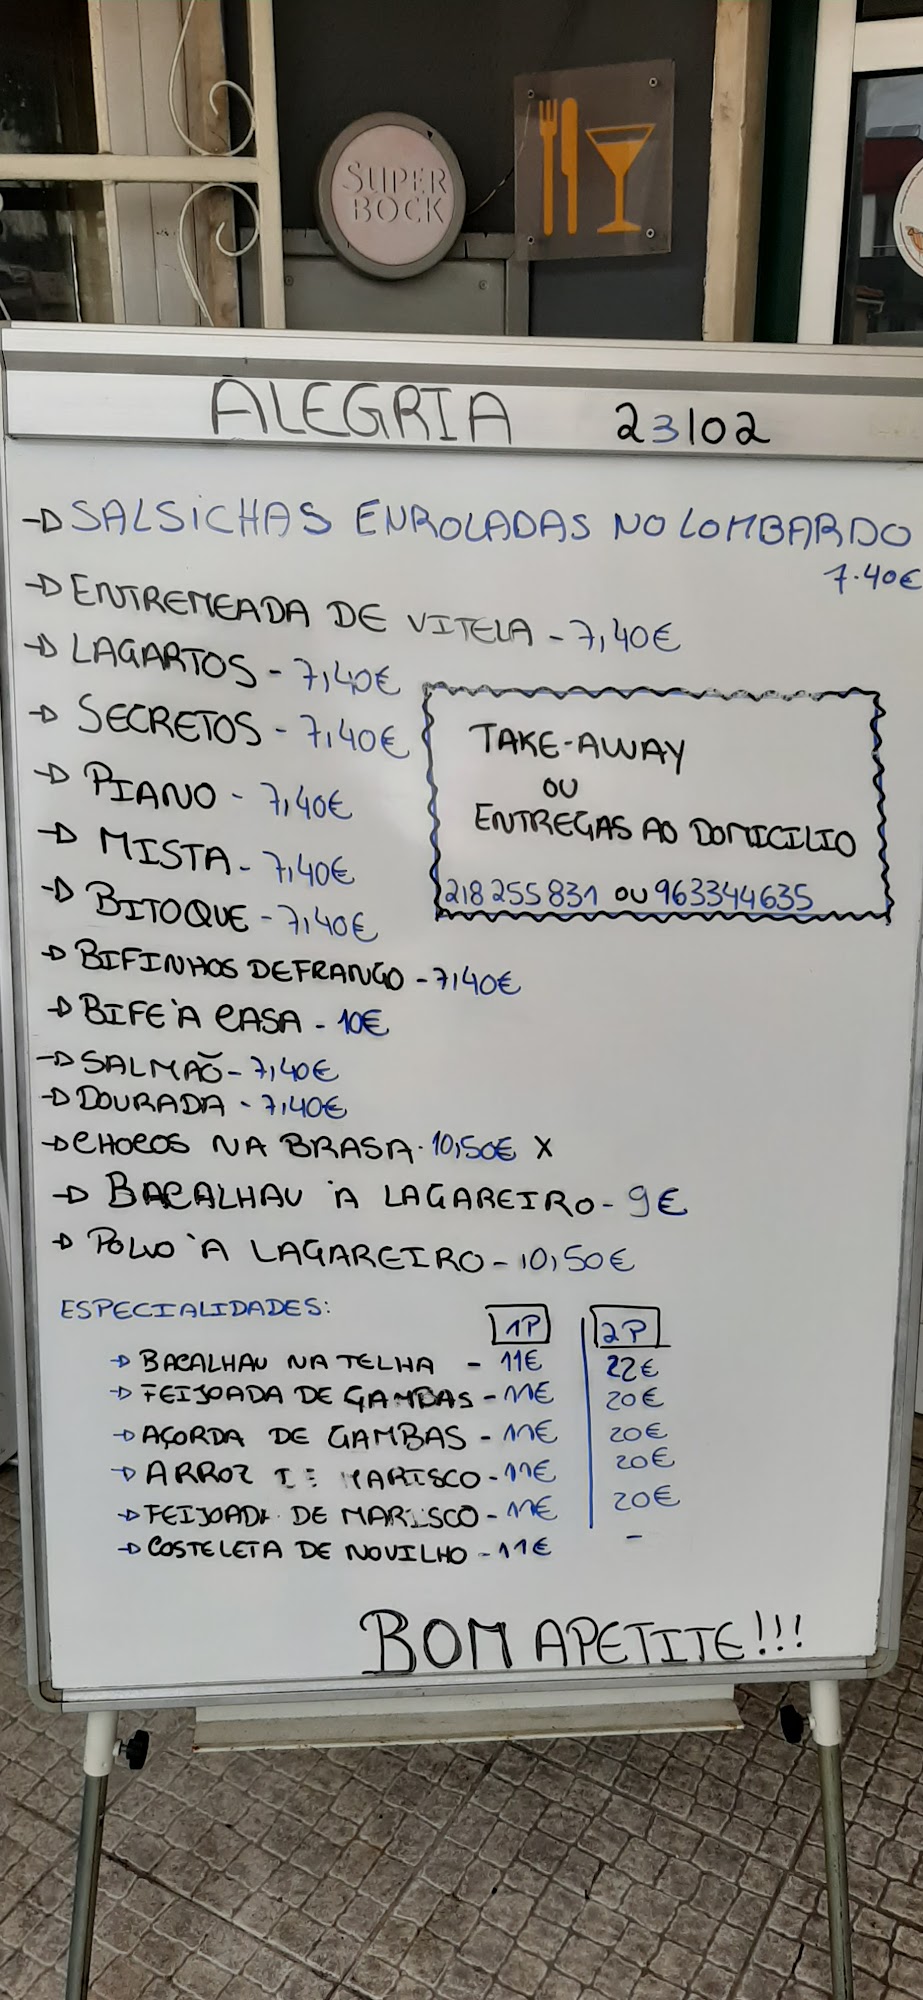 SUPER
BOCK
ALEGRIA 23/02
SALSICHAS ENROLADAS NO LOMBARDO
7.40€
ENTREMEADA DE VITELA - 7,40€
LAGARTOS - 7,40€
SECRETOS - 7,40€
PIANO - 7,40€
MISTA - 7,40€
BITOQUE - 7,40€
TAKE-AWAY
OU
ENTREGAS AO DOMICILIO
218 255 831 OU 963344635
BIFINHOS DE FRANGO - 7,40€
BIFE À CASA - 10€
SALMÃO - 7,40€
DOURADA - 7,40€
CHOCOS NA BRASA - 10,50€ X
BACALHAU À LAGAREIRO - 9€
POLVO À LAGAREIRO - 10,50€
ESPECIALIDADES: 1P 2P
BACALHAU NA TELHA - 11€ 22€
FEIJOADA DE GAMBAS - 11€ 20€
AÇORDA DE GAMBAS - 11€ 20€
ARROZ DE MARISCO - 11€ 20€
FEIJOADA DE MARISCO - 11€ 20€
COSTELETA DE NOVILHO - 11€ -
BOM APETITE!!!